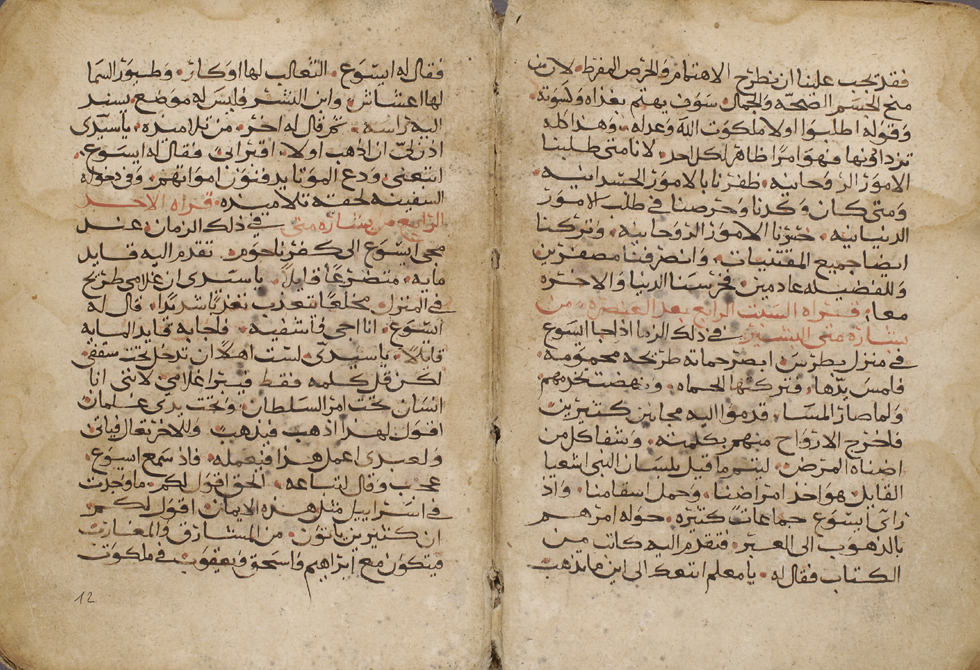 فقد يجب علينا ان نطرح الاهتمام والحرص المفرط لان من
منح الجسم الصحه والجمال سوف يهتم بغذاه وكسوته
وقوله اطلبوا اولا ملكوت الله وعدله وهذا كله
تزدادونها فهو امرًا ظاهرًا لكل احد لاننا متى طلبنا
الامور الروحانيه ظفرنا بالامور الجسدانيه
ومتى كان وكدنا وحرصنا في طلب الامور
الدنيانيه خسرنا الامور الروحانيه وتركنا
ايضا جميع المقتنيات وانصرفنا مصفرين
وللفضيله عادمين فخرسنا الدنيا والاخره
معا قراه السبت الرابع بعد العنصره من
بشاره متى البشير في ذلك الزمان اذ جا ايسوع
في منزل بطرس ابصر حماته طريحه محمومه
فلمس يدها فتركتها الحماه ونهضت تخدمهم
ولما صار المسا قدموا اليه مجانين كثيرين
فاخرج الارواح منهم بكلمته وشفا كل من
اضناه المرض ليتم ما قيل بلسان النبي اشعيا
القايل هو اخذ امراضنا وحمل اسقامنا واذ
راى ايسوع جماعات كثيره حوله امرهم
بالذهوب الى العبر فتقدم اليه كاتب من
الكتاب فقال له يا معلم اتبعك الى اين ما تذهب
فقال له ايسوع الثعالب لها اوكار وطيور السما
لها اعشاش وابن البشر فليس له موضع يسند
اليه راسه ثم قال له اخر من تلاميذه يا سيدي
اذن لي ان اذهب اولا اقبر ابي فقال له ايسوع
اتبعني ودع الموتا يدفنون امواتهم وفي دخوله
السفينه لحقه تلاميذه قراه الاحد
الرابع من بشاره متى في ذلك الزمان عند
مجي ايسوع الى كفرناحوم تقدم اليه قايد
مايه متضرعًا قايلاً يا سيدي ان غلامي طريح
في المنزل مخلعًا تعذب تعذيبًا شديدًا قال له
ايسوع انا اجي واشفيه فاجابه قايد المايه
قايلاً يا سيدي لست اهلاً ان تدخل تحت سقفي
لكن قل كلمه فقط فيبرا غلامي لانني انا
انسان تحت امر السلطان وتحت يدي غلمان
اقول لهذا اذهب فيذهب وللاخر تعال فياتي
ولعبدي اعمل هذا فيعمله فاذ سمع ايسوع
عجب وقال لتباعه الحق اقول لكم ما وجدت
في اسراييل مثل هذه الايمان اقول لكم
ان كثيرين ياتون من المشارق والمغارب
فيتكون مع ابراهيم واسحق ويعقوب في ملكوت
12